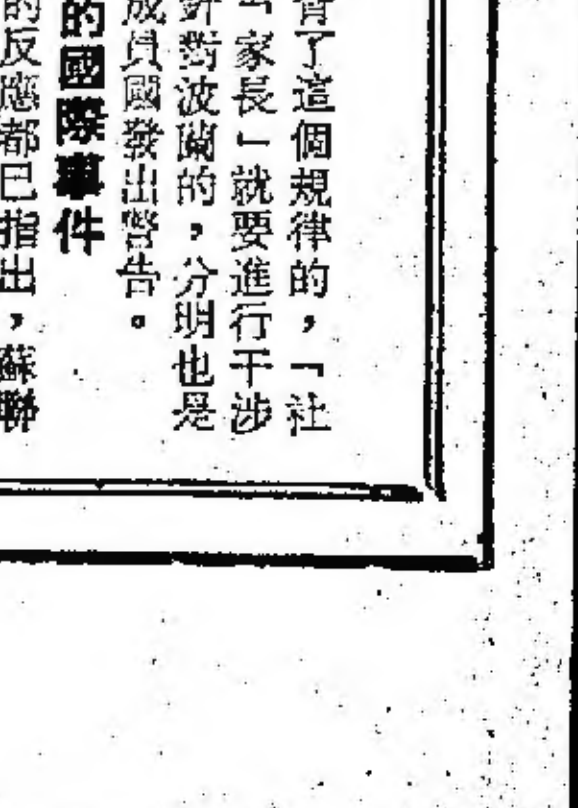 背了這個規律的，「社
「家長」就要進行干涉
針對波蘭的，分明也是
成員國發出警告。
的國際事件
的反應都已指出，蘇聯